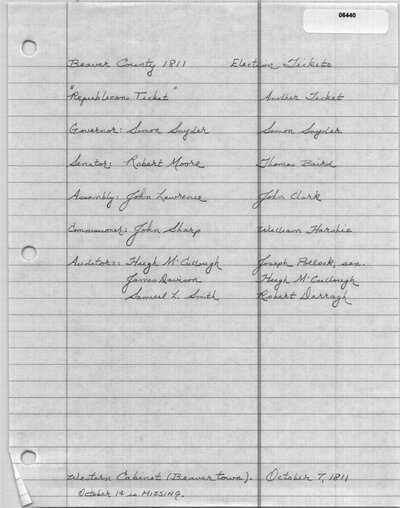 06440
Beaver County 1811 Election Tickets
"Republican Ticket" Another Ticket
Governor: Simon Snyder Simon Snyder
Senator: Robert Moore Thomas Baird
Assembly: John Lawrence John Clark
Commissioner: John Sharp William Harshie
Auditors: Hugh McCullough Joseph Pollock, sen.
James Davison Hugh McCullough
Samuel L. Smith Robert Darragh
Western Cabinet (Beavertown). October 7, 1811
October 14 is MISSING.